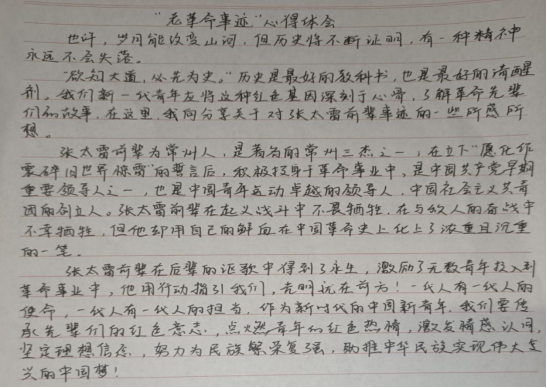 “老革命事迹”心得体会
也许，岁月能改变山河，但历史将不断证明，有一种精神
永远不会失落。
“欲知大道，必先为史。”历史是最好的教科书，也是最好的清醒
剂。我们新一代青年应将这种红色基因深刻于心骨，了解革命先辈
们的故事，在这里，我向分享关于对张太雷前辈事迹的一些所感所
想。
张太雷前辈为常州人，是著名的常州三杰之一，在立下“愿化作
震碎旧世界惊雷”的誓言后，积极投身于革命事业中，是中国共产党早期
重要领导人之一，也是中国青年运动卓越的领导人，中国社会主义共青
团的创立人。张太雷前辈在起义战斗中不畏牺牲，在与敌人的奋战中
不幸牺牲，但他却用自己的鲜血在中国革命史上化上了浓重且沉重
的一笔。
张太雷前辈在后辈的讴歌中得到了永生，激励了无数青年投入到
革命事业中，他用行动指引我们，光明就在前方！一代人有一代人的
使命，一代人有一代人的担当，作为新时代的中国新青年，我们要传
承先辈们的红色意志，点燃青年的红色热情，激发情感认同，
坚定理想信念，努力为民族繁荣复强，助推中华民族实现伟大复
兴的中国梦！